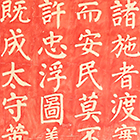 諸施者渡
而安民莫不
許忠浮圖義
既成太守